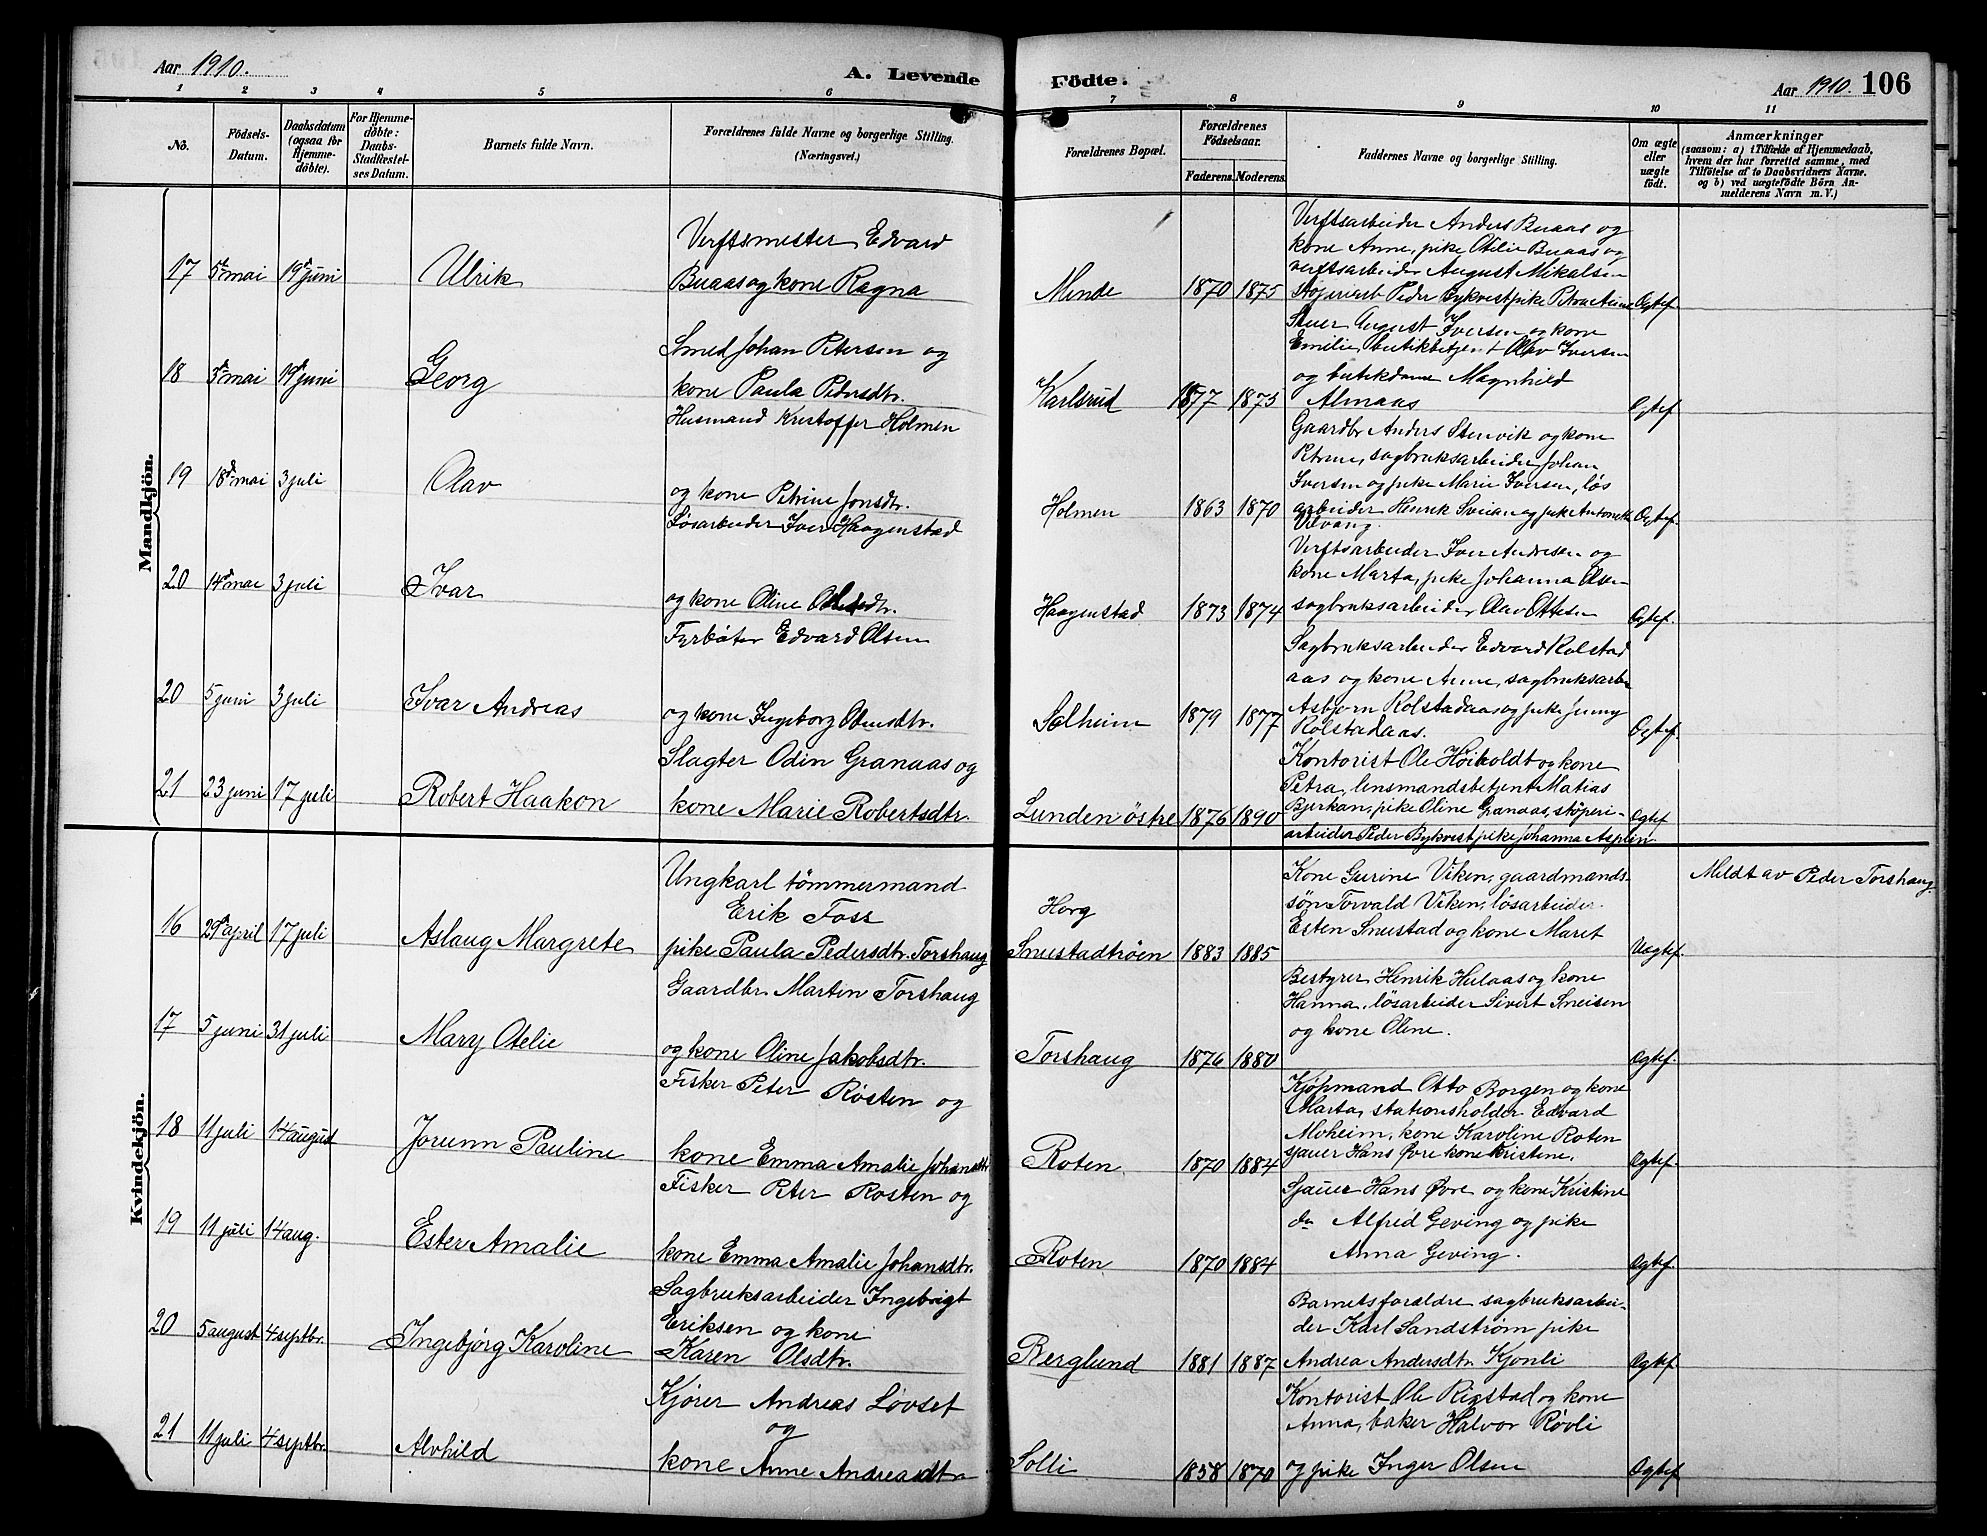 Aar 1910.
A. Levende
Födte.
Aar 1910. 106
1 2 3 4 5 6 7 8 9 10 11
No.
Födsels-
Datum.
Daabsdatum
(ogsaa for
Hjemme-
döbte).
For Hjemme-
döbte:
Daabs-
Stadfæstel-
ses Datum.
Barnets fulde Navn.
Forældrenes fulde Navne og borgerlige Stilling.
(Næringsvei.)
Forældrenes Bopæl.
Forældrenes
Födselsaar.
Faderens. Moderens.
Faddernes Navne og borgerlige Stilling.
Om ægte
eller
uægte
födt.
Anmærkninger
(saasom: a) i Tilfælde af Hjemmedaab,
hvem der har forrettet samme, med
Tilföielse af to Daabsvidners Navne.
og b) ved uægtefödte Börn An-
melderens Navn m. V.)
Mandkjön.
17 5te mai 19de juni Ulrik
Verftsmester Edvard
Buaas og kone Ragna
Minde 1870 1875
Verftsarbeider Anders Buaas og
kone Anne, pike Otelie Buaas og
verftsarbeider August Mikalsen
støperiarb Peder Bykvist pike Petra
Ogtef.
18 5te mai 19de juni Georg
Smed Johan Petersen og
kone Paula Pedersdtr.
Karlsrud 1877 1875
Stuer August Iversen og kone
Emilie, butikbetjent Olav Iversen
og butikdame Magnhild
Almaas
Ogtef.
19 18de mai 3 juli Olav
Husmand Kristoffer Holmen
og kone Petrine Jonsdtr.
Holmen 1863 1870
Gaardbr Anders Stenvik og kone
Petrine, sagbruksarbeider Johan
Iversen og pike Marie Iversen, løs
arbeider Henrik Sveian og pike Antonette
Ogtef.
20 14de mai 3 juli Ivar
Løsarbeider Iver Haagenstad
og kone Oline
Haagenstad 1873 1874
Verftsarbeider Iver Andresen og
kone Marta, pike Johanna Olsen
sagbruksarbeider Olav Ottesen
Ogtef.
20 5 juni 3 juli Ivar Andreas
Fyrbøter Edvard Olsen
og kone Ingeborg
Solheim 1879 1877
Sagbruksarbeider Edvard Rolstad
aas og kone Anne, sagbruksarbei
Asbjørn Rolstadaas og pike Jenny
Rolstadaas.
Ogtef.
21 23 juni 17 juli Robert Haakon
Slagter Odin Granaas og
kone Marie Robertsdtr.
Lunden östre 1876 1890
Kontorist Ole Høiboldt og kone
Petra, lensmandsbetjent Matias
Bjerkan, pike Oline Granaas, støperi-
arbeider Peder Bykvist pike Johanna Asplin
Ogtef
Kvindekjön.
16 29de april 17 juli Aslaug Margrete
Ungkarl tømmermand
Erik Foss
pike Paula Pedersdtr. Torshaug
Horg
Smustadtrøen 1883 1885
Kone Gurine Viken, gaardmands-
søn Torvald Viken, løsarbeider
Esten Snustad og kone Maret
Uegtef.
Meldt av Peder Torshaug.
17 5 juni 31 juli Mary Otelie
Gaardbr. Martin Torshaug
og kone Oline Jakobsdtr.
Torshaug 1876 1880
Bestyrer Henrik Hulaas og kone
Hanna, løsarbeider Sivert Sneisen
og kone Oline.
Ogtef.
18 11 juli 14 august Jorunn Pauline
Fisker Peter Røsten og
kone Emma Amalie Johansdtr
Roten 1870 1884
Kjøpmand Otto Borgen og kone
Marta, stationsholder Edvard
Moheim, kone Karoline Roten
sjauer Hans Øvre kone Kristine.
Ogtef.
19 11 juli 14 aug. Ester Amalie
Fisker Peter Rosten og
kone Emma Amalie Johansdtr.
Roten 1870 1884
Sjauer Hans Øvre og kone Kristine
do Alfred Geving og pike
Anna Geving.
Ogtef.
20 5 august 4 septbr. Ingebjørg Karoline
Sagbruksarbeider Ingebrigt
Eriksen og kone
Karen Olsdtr.
Berglund 1881 1887
Barnets forældre sagbruksarbei-
der Karl Sandstrøm pike
Andrea Andersdtr. Kjønli
Ogtef.
21 11 juli 4 septbr. Alvhild
Kjører Andreas Løvset
og
kone Anne Andreasdtr
Solli 1858 1870
Kontorist Ole Rigstad og kone
Anna, baker Halvor Røvli
og pike Inger Olsen
Ogtef.